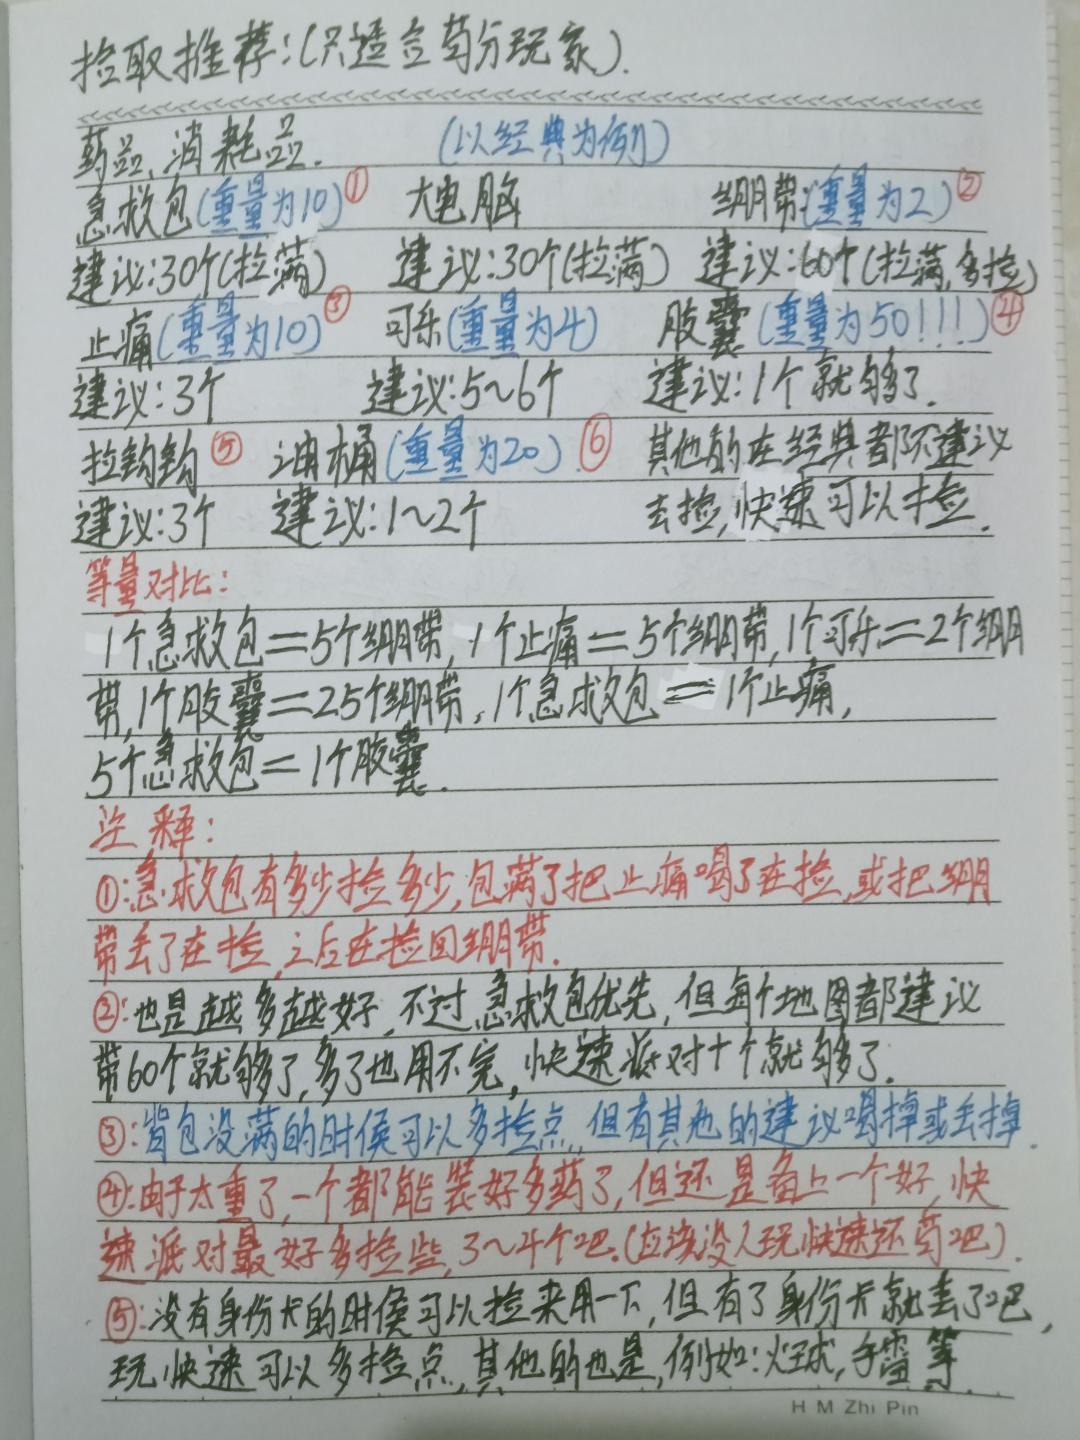 捡取推荐:(只适合苟分玩家).
药品,消耗品.  (以经典为例)
急救包(重量为10)① 大电脑 绷带:(重量为2)②
建议:30个(拉满) 建议:30个(拉满) 建议:60个(拉满,多捡)
止痛(重量为10)③ 可乐(重量为4) 胶囊(重量为50!!!)④
建议:3个 建议:5~6个 建议:1个就够了.
拉钩钩⑤ 油桶(重量为20).⑥ 其他的在经典都不建议
建议:3个 建议:1~2个 去捡,快速可以捡.
等量对比:
1个急救包=5个绷带,1个止痛=5个绷带,1个可乐=2个绷
带,1个胶囊=25个绷带,1个急救包=1个止痛,
5个急救包=1个胶囊.
注释:
①:急救包有多少捡多少,包满了把止痛喝了在捡,或把绷
带丢了在捡,之后在捡回绷带.
②:也是越多越好,不过急救包优先,但每个地图都建议
带60个就够了,多了也用不完,快速派对十个就够了.
③:背包没满的时候可以多捡点,但有其他的建议喝掉或丢掉.
④:由于太重了,一个都能装好多药了,但还是备上一个好,快
速派对最好多捡些,3~4个吧.(应该没人玩快速还苟吧).
⑤:没有身份卡的时候可以捡来用一下,但有了身份卡就丢了吧,
玩快速可以多捡点,其他的也是,例如:火球,手雷等.
H M Zhi Pin